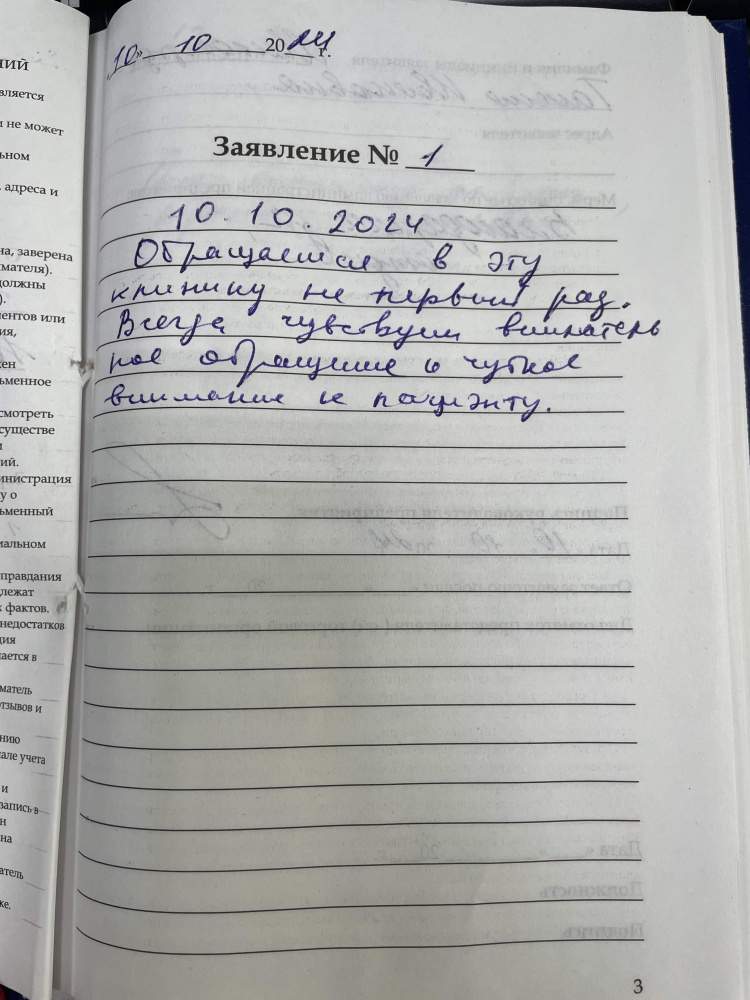 «10» 10 2024 г.
ний
вляется
и не может
ьном
, адреса и
на, заверена
имателя).
должны
).
ментов или
ия,
кен
сьменное
смотреть
существе
и
ий.
министрация
у о
сьменный
иальном
правдания
длежат
х фактов.
недостатков
ция
ается в
матель
отзывов и
нию
але учета
и
запись в
н
на
атель
ке.
Заявление № 1
10.10.2024
Обращаемся в эту
клинику не первый раз.
Всегда чувствуем вниматель
ное обращение и чуткое
внимание к пациэнту.
3